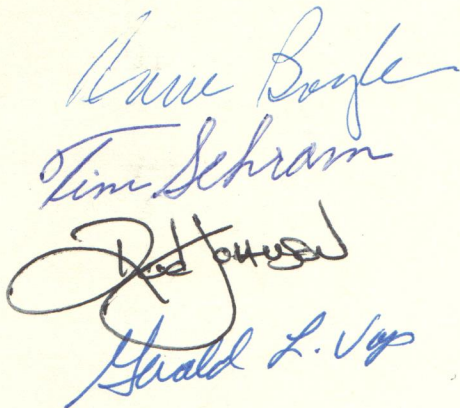 Dave Boyle
Tim Schram
Rod Johnson
Gerald L. Vap